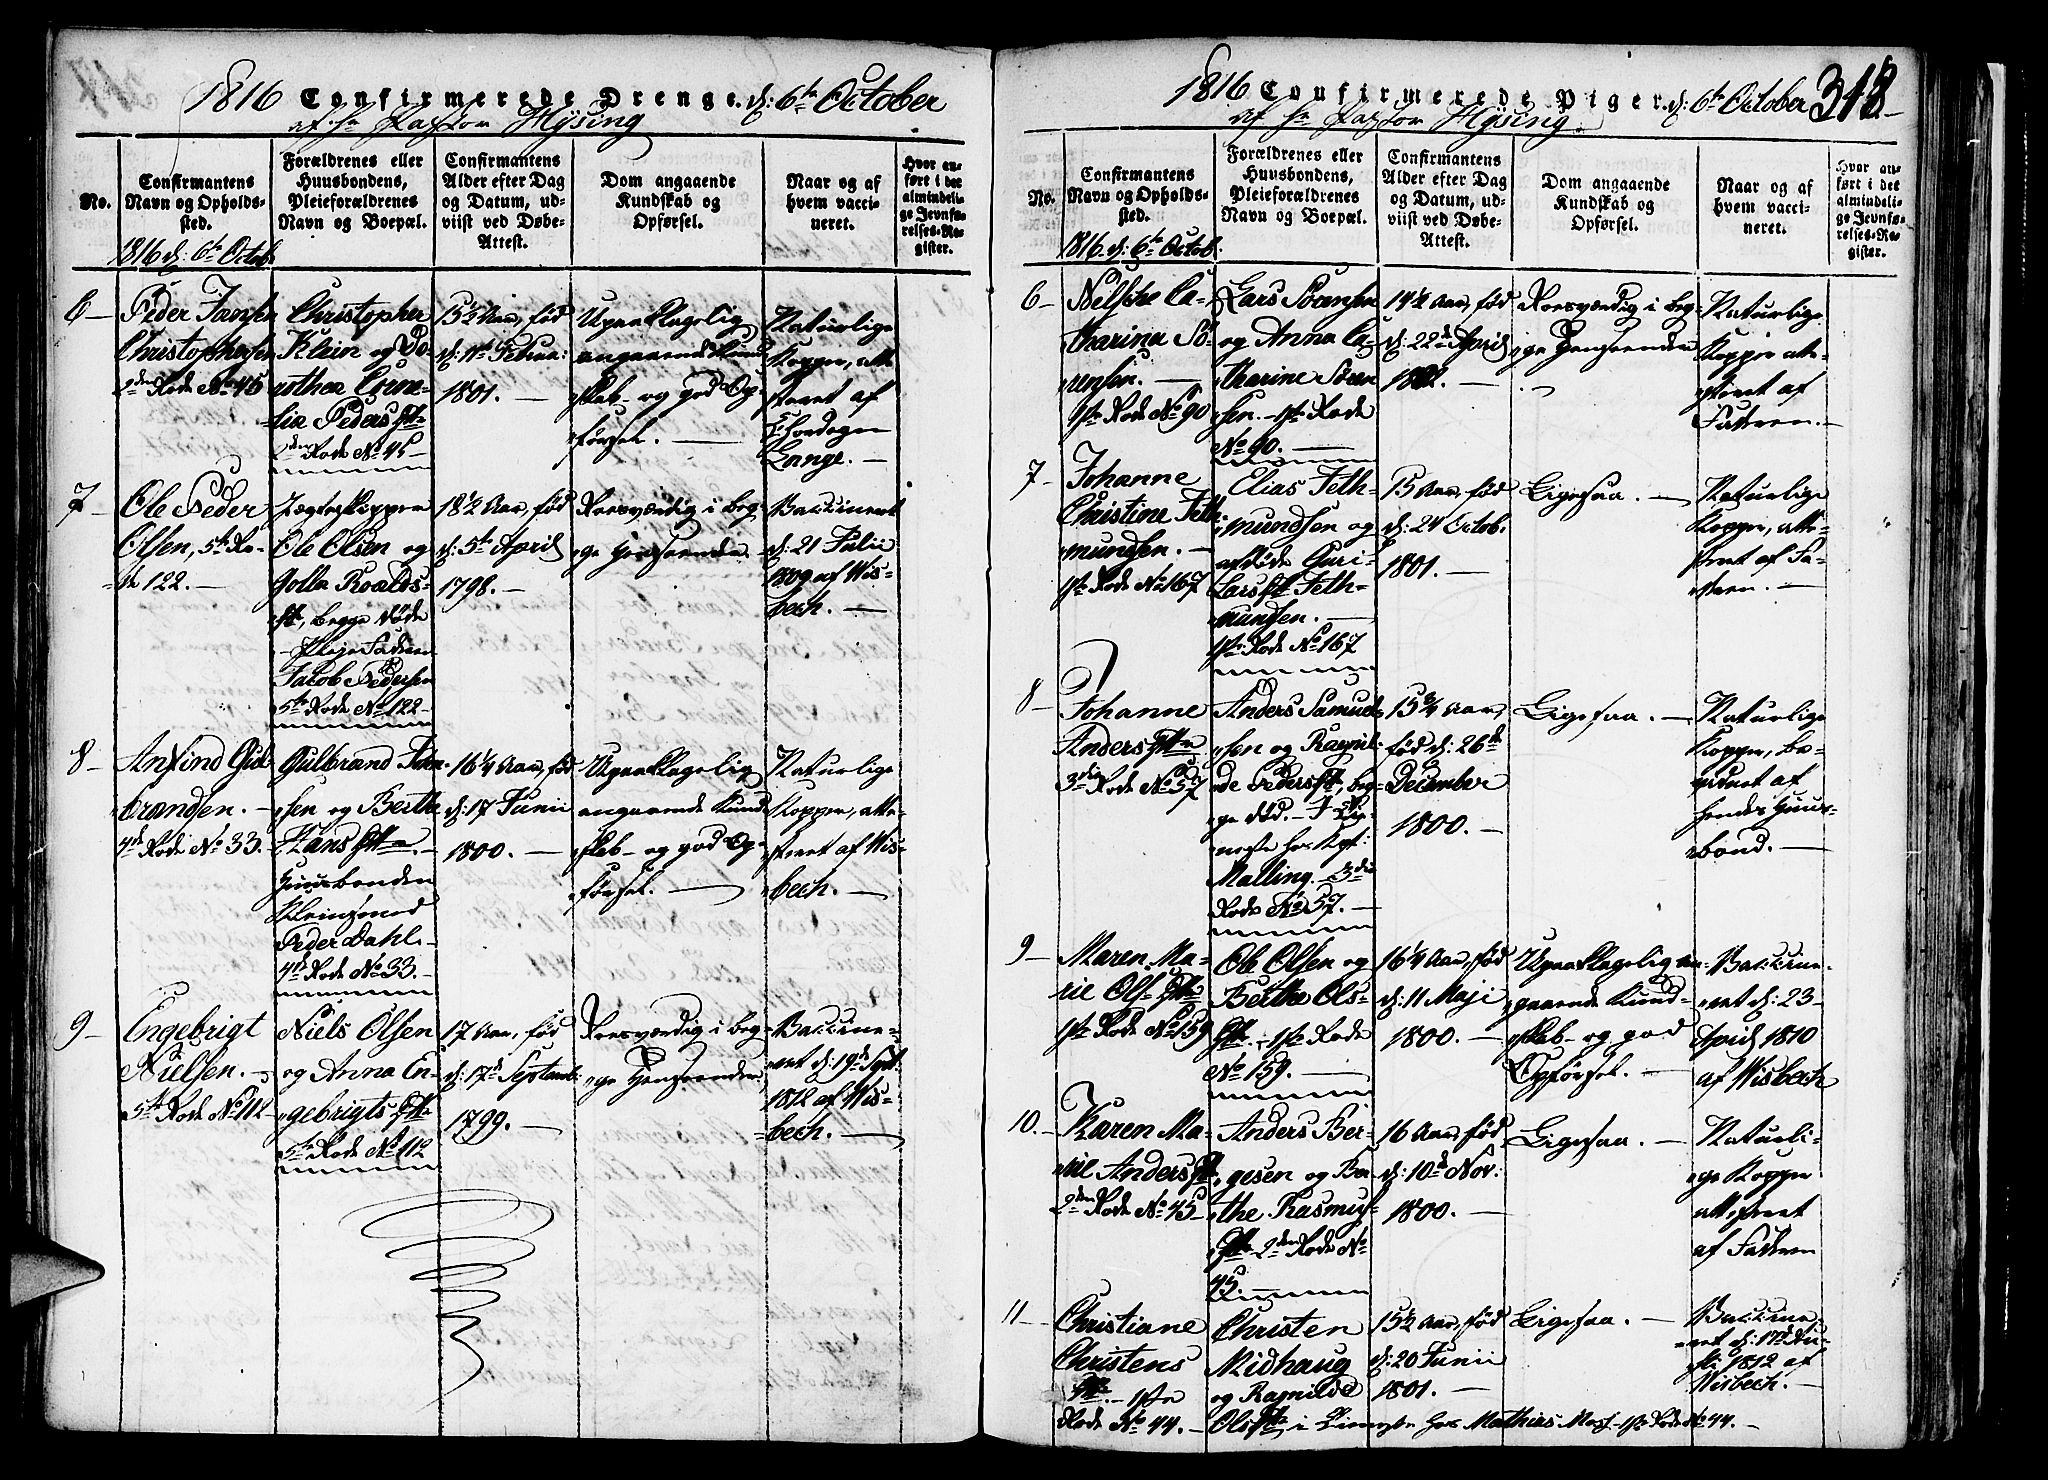 1816 Confirmerede Drenge. d: 6te October
af Hr Pastor Hysing
No.
Confirmantens
Navn og Opholds-
sted.
Forældrenes eller
Huusbondens,
Pleieforældrenes
Navn og Boepæl.
Confirmantens
Alder efter Dag
og Datum, ud-
viist ved Døbe-
Attest.
Dom angaaende
Kundskab og
Opførsel.
Naar og af
hvem vacci-
neret.
Hvor an-
ført i det
almindeli-
ge Jevnfø-
relses-Re-
gister.
1816 d: 6te Octob.
6
Peder Jansen
Christophersen
2den Rode No 45
Christopher
Klein og Do-
rothea Corne-
lia Peders
2den Rode No 45
15½ Aar, fød
d: 11te Februa:
1801.
Upaaklagelig
angaaende Kund
skab og god Op-
førsel.
Naturlige
Kopper, atte-
steret af
Lange.
7
Ole Peder
Olsen, 5te Ro-
de 122.
Jægteskipper
Ole Olsen og
Jolla Roalds-
begge døde
Pleje Faderen
Jacob Pedersen
5te Rode No 122
18½ Aar, fød
d: 5te April
1798.
Roesværdig i beg-
ge Henseender
Vaccineret
d: 21 Julii
1809 af Wis-
bech.
8
Anfind Gul-
brandsen.
4de Rode No 33.
Gulbrand
sen og Berthe
Hans
Huusbonden
Kleinsmed
Peder Dahl.
4de Rode No 33.
16¼ Aar, fød
d: 17 Junii
1800.
Upaaklagelig
angaaende Kund
skab og god Op-
førsel.
Naturlige
Kopper, atte-
steret af Wis-
bech.
9
Engebrigt
Nielsen.
5te Rode No 112
Niels Olsen
og Anna En-
gebrigts
5te Rode No 112
17 Aar, fød
d: 17de Septemb:
1799.
Roesværdig i beg-
ge Henseender
Vaccine-
ret d: 19de Sept:
1812 af Wis-
bech.
1816 Confirmerede Piger. d: 6te October 318
af Hr Pastor Hysing
No.
Confirmantens
Navn og Opholds-
sted.
Forældrenes eller
Huusbondens,
Pleieforældrenes
Navn og Boepæl.
Confirmantens
Alder efter Dag
og Datum, ud-
viist ved Døbe-
Attest.
Dom angaaende
Kundskab og
Opførsel.
Naar og af
hvem vacci-
neret.
Hvor an-
ført i det
almindeli-
ge Jevnfø-
relses-Re-
gister.
1816. d: 6te Octob.
6
Nelsche Ca-
tharina Sö-
rensen.
1ste Rode No 90
Lars Sörensen
og Anna Ca-
tharine Sören
sen. 1ste Rode
No 90.
14½ Aar, fød
d: 22de April
Roesværdig i beg-
ge Henseender
Naturlige
Kopper atte-
steret af
Faderen.
7
Johanne
Christine Feth-
mundsen.
1ste Rode No 167
Elias Feth-
mundsen og
afdøde Guri
Lars Feth-
mundsen.
1ste Rode No 167
15 Aar, fød
d: 24 Octob.
1801.
Ligesaa.
Naturlige
Kopper, atte-
steret af Fa-
deren.
8
Johanne
Anders
3die Rode No 57
Anders Samuel-
sen og Ragnil-
de Peders beg-
ge død.
neste hos Kpt:
Malling. 3die
Rode No 57.
15¾ Aar,
fød d: 26de
December
1800.
Ligesaa.
Naturlige
Kopper, be-
vidnet af
hendes Huus-
bond.
9
Maren Ma-
rie Ols
1ste Rode No 159
Ole Olsen og
Berthe Ols-
1ste Rode
No 159.
16¼ Aar, fød
d: 11 Maji
1800.
Upaaklagelig an-
gaaende Kund-
skab og god
Opførsel.
Vaccine-
ret d: 23
April 1810
af Wisbech
10.
Karen Ma-
rie Anders
2den Rode No 45
Anders Ber-
gesen og Ber-
the Rasmus-
2den Rode No
45.
16 Aar, fød
d: 10de Nov:
1800.
Ligesaa.
Naturli-
ge Kopper
attesteret
af Faderen
11
Christiane
Christens
1ste
Rode No 44.
Christen
Midhaug
og Ragnilde
Ols i Tieneste hos Mathias Mos. 1ste Rode No 44.
15½ Aar, fød
d: 20 Junii
1801.
Ligesaa.
Vaccine-
ret d: 17de Au-
1812 af
Wisbech.